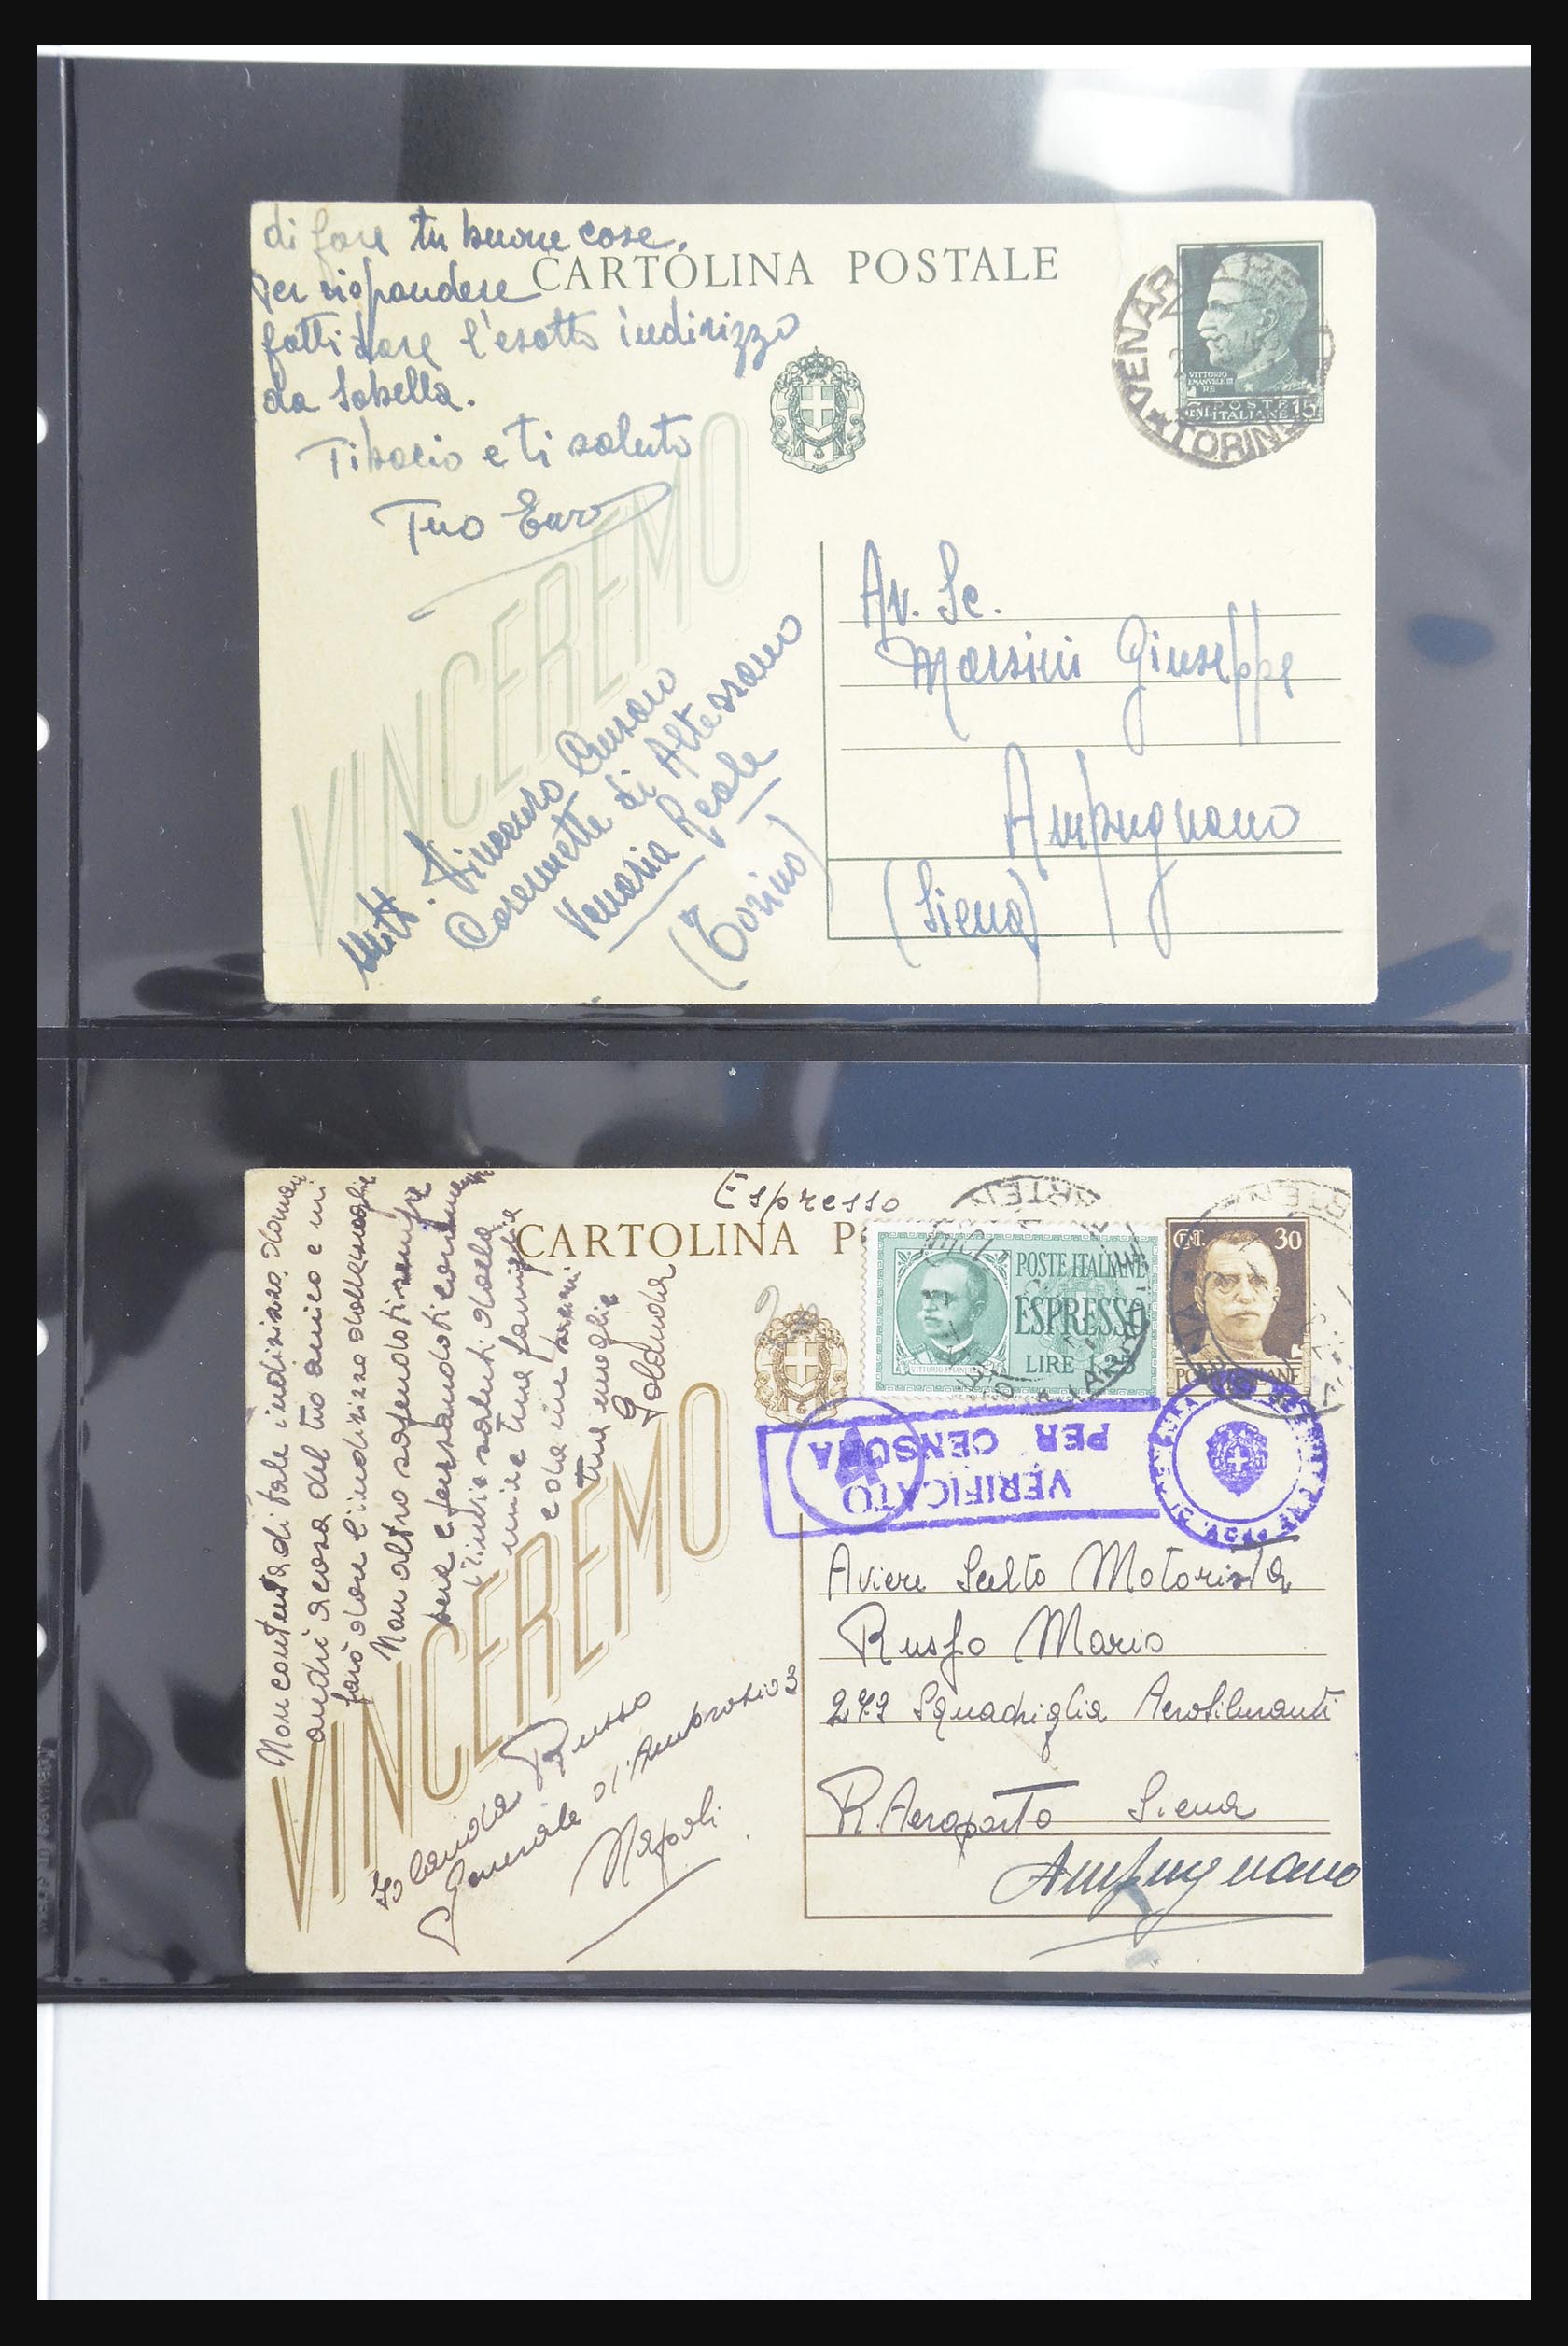 di fare tu buone cose.
Per rispondere
fatti dare l'esatto indirizzo
da Sabella.
Ti bacio e ti saluto
Tuo Enzo
CARTOLINA POSTALE
VENAR
TORINO
VITTORIO
EMANVELE III
RE
CENT. POSTE 15
ITALIANE
VINCEREMO
Av. Sc.
Marsini Giuseppe
Ampugnano
(Siena)
Mitt. Vincenzo
Casermette di Altessano
Venaria Reale
(Torino)
Espresso
CARTOLINA P
POSTE ITALIANE
ESPRESSO
LIRE 1,25
VITTORIO EMAN
CENT. 30
POSTE ITALIANE
VERIFICATO
PER CENSURA
Non contenta di tale indirizzo, domani
andrò a casa del tuo amico e mi
farò dare l'indirizzo dalla moglie
Non altro sapendoti sempre
bene e pensandoti
t'invio saluti dalla
mia e tua famiglia
e da me
tua moglie
Iolanda
VINCEREMO
Iolanda Russo
Generale d'Ambrosio 3
Napoli
Aviere Scelto Motorista
Russo Mario
Squadriglia Aerosiluranti
R. Aeroporto Siena
Ampugnano